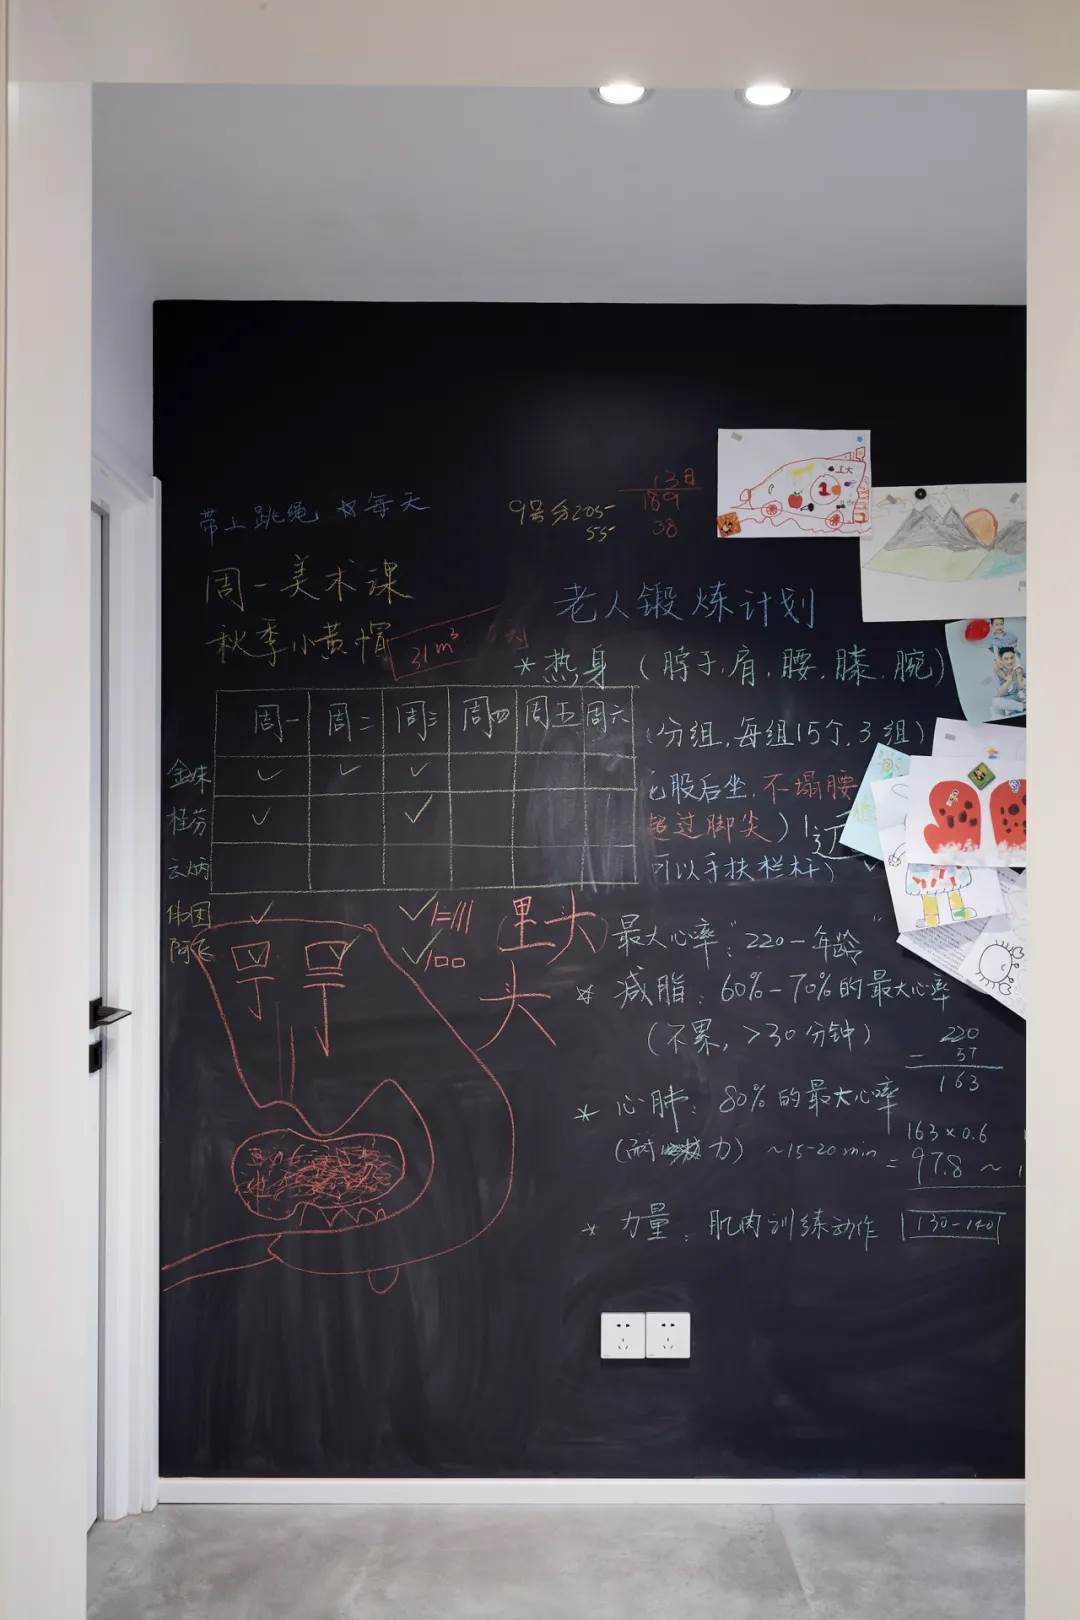 带上跳绳 每天
9号分205
55
13日
189
38
上大
1
周一美术课
秋季小黄帽
31m³
老人锻炼计划
*热身（脖子.肩.腰.膝.腕）
周一 周二 周三 周四 周五 周六
（分组，每组15个，3组）
股后坐，不塌腰
超过脚尖）
可以手扶栏杆）
云炳
里头
头
最大心率："220－年龄"
* 减脂：60%-70%的最大心率
（不累，>30分钟）
220
- 57
163
* 心肺：80%的最大心率
（耐力）~15-20min
163×0.6
=97.8~
* 力量：肌肉训练动作 130-140